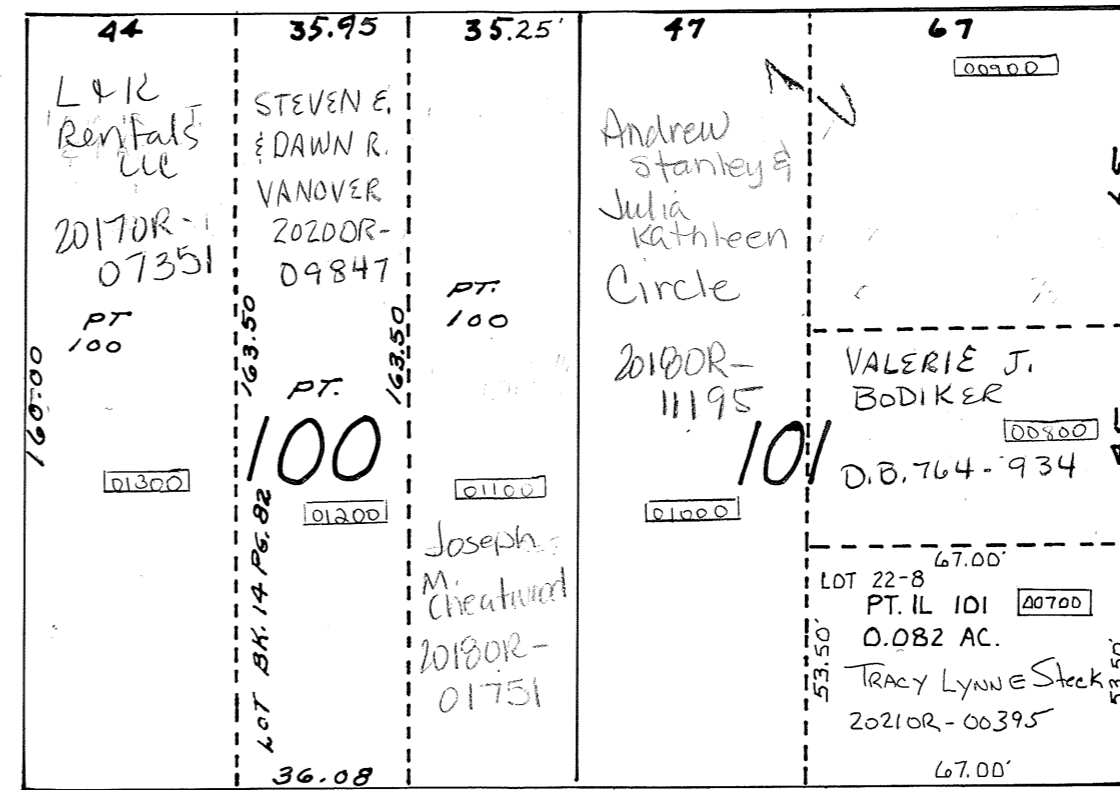 44
L & K
Rentals
LLC
2017OR-
07351
PT
100
160.00
01300
35.95
STEVEN E.
& DAWN R.
VANOVER
2020OR-
09847
163.50
163.50
PT.
100
01200
LOT BK. 14 PG. 82
36.08
35.25'
PT.
100
01100
Joseph
M.
Cheatwood
2018OR-
01751
47
Andrew
Stanley &
Julia
Kathleen
Circle
2018OR-
11195
101
01000
67
00900
VALERIE J.
BODIKER
00800
D.B. 764-934
67.00'
LOT 22-8
PT. IL 101
00700
0.082 AC.
53.50'
53.50'
TRACY LYNNE Steck
2021OR-00395
67.00'